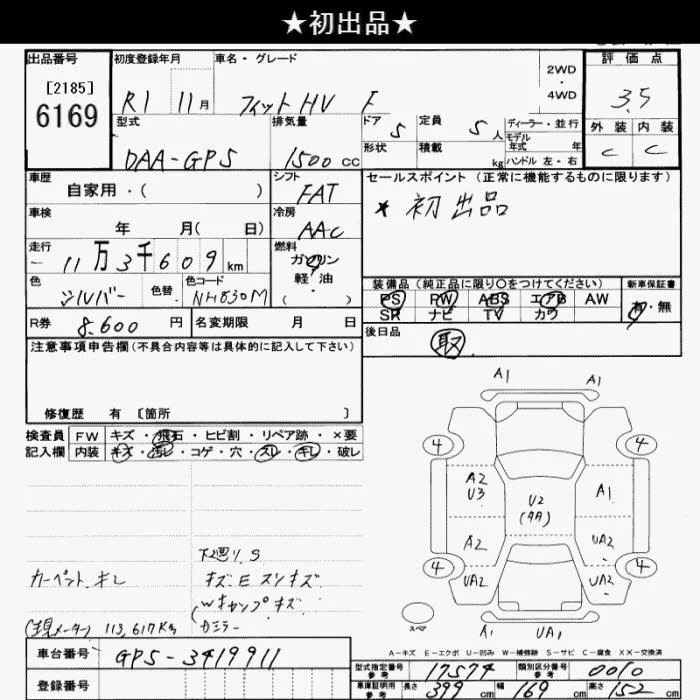 ★初出品★
出品番号
[2185]
6169
初度登録年月
R1 11月
車名・グレード
フィットHV F
2WD
・
4WD
評価点
3.5
外装 内装
C C
型式
DAA-GP5
排気量
1500 CC
ドア 5
定員 5人
ディーラー・並行
モデル
年式 年
形状
積載 kg
ハンドル 左・右
車歴
自家用・( )
シフト
FAT
セールスポイント(正常に機能するものに限ります)
★ 初出品
車検
年 月( 日)
冷房
AAC
走行
11万3千609km
燃料
ガソリン
軽・油
( ・ )
色
シルバー
色替
色コード
NH830M
装備品(純正品に限り○をつけてください)
新車保証書
PS PW ABS エアB AW
有・無
SR ナビ TV カワ
R券 8.600円
名変期限 月 日
後日品
取
注意事項申告欄(不具合内容等は具体的に記入して下さい)
修復歴 有 〔箇所 〕
検査員
記入欄
FW キズ・飛石・ヒビ割・リペア跡・×要
内装 キズ・汚レ・コゲ・穴・スレ・キレ・破レ
カーペット キレ
(現メーター) 113,617Km
下廻り S
キズ E スリキズ
Wキャップ キズ
(カミラー
A1 A1
4 4
A2
U3
U2
(9A)
A1
A2
UA2
4 4
UA2
UA2
スペア
A1 UA1
A-キズ E-エクボ U-凹み W-補修跡 S-サビ C-腐食 XX-交換済
車台番号
GP5-3419911
登録番号
型式指定番号
参考
17574
類別区分番号
参考
0010
車庫証明用
参考
長さ 399cm 幅 169cm 高さ 152cm